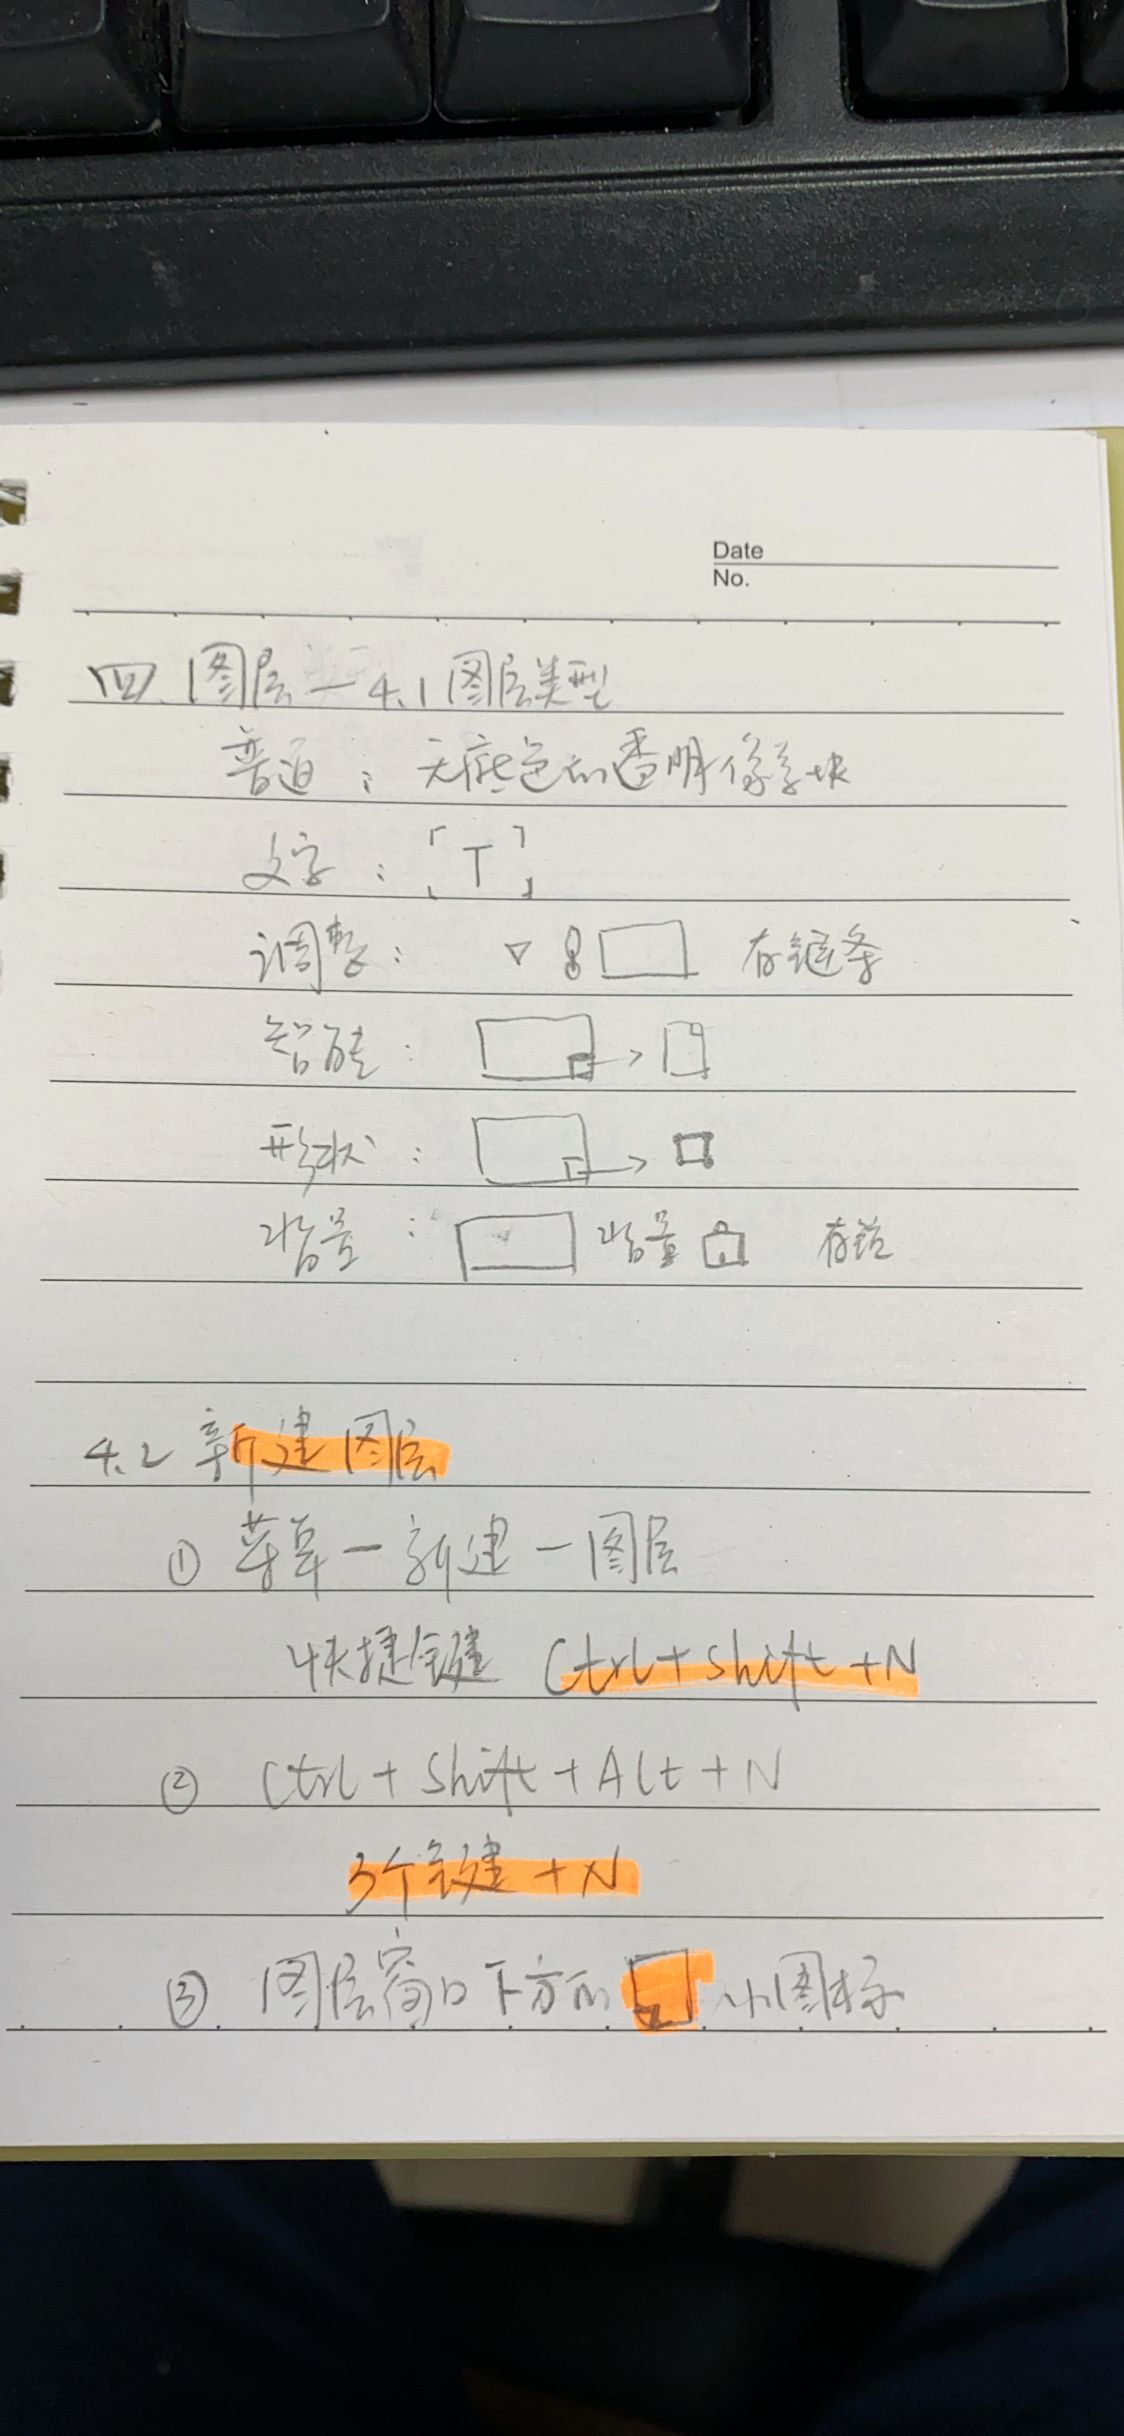 Date
No.
四、图层—4.1图层类型
普通：无底色的透明像素块
文字：「T」
调整： 存链条
智能：
形状：
背景： 背景 存锁
4.2 新建图层
① 菜单—新建—图层
快捷键 Ctrl+shift+N
② Ctrl+Shift+Alt+N
3个键+N
③ 图层窗口下方的 小图标